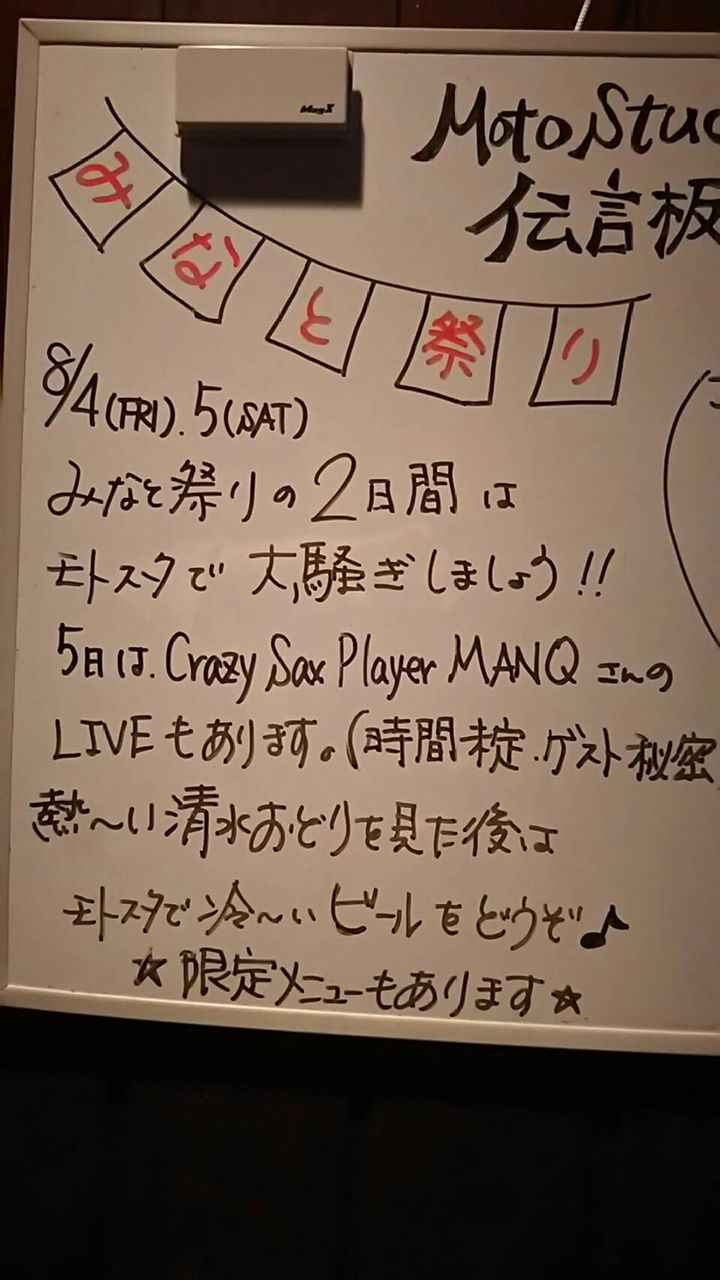 MagX
Moto Stu
伝言板
みなと祭り
8/4(FRI). 5(SAT)
みなと祭りの2日間は
モトスタで 大騒ぎしましょう!!
5日は. Crazy Sax Player MANQ さんの
LIVEもあります。(時間未定.ゲスト秘密
熱〜い清水おどりを見た後は
モトスタで冷〜いビールをどうぞ♪
☆限定メニューもあります☆